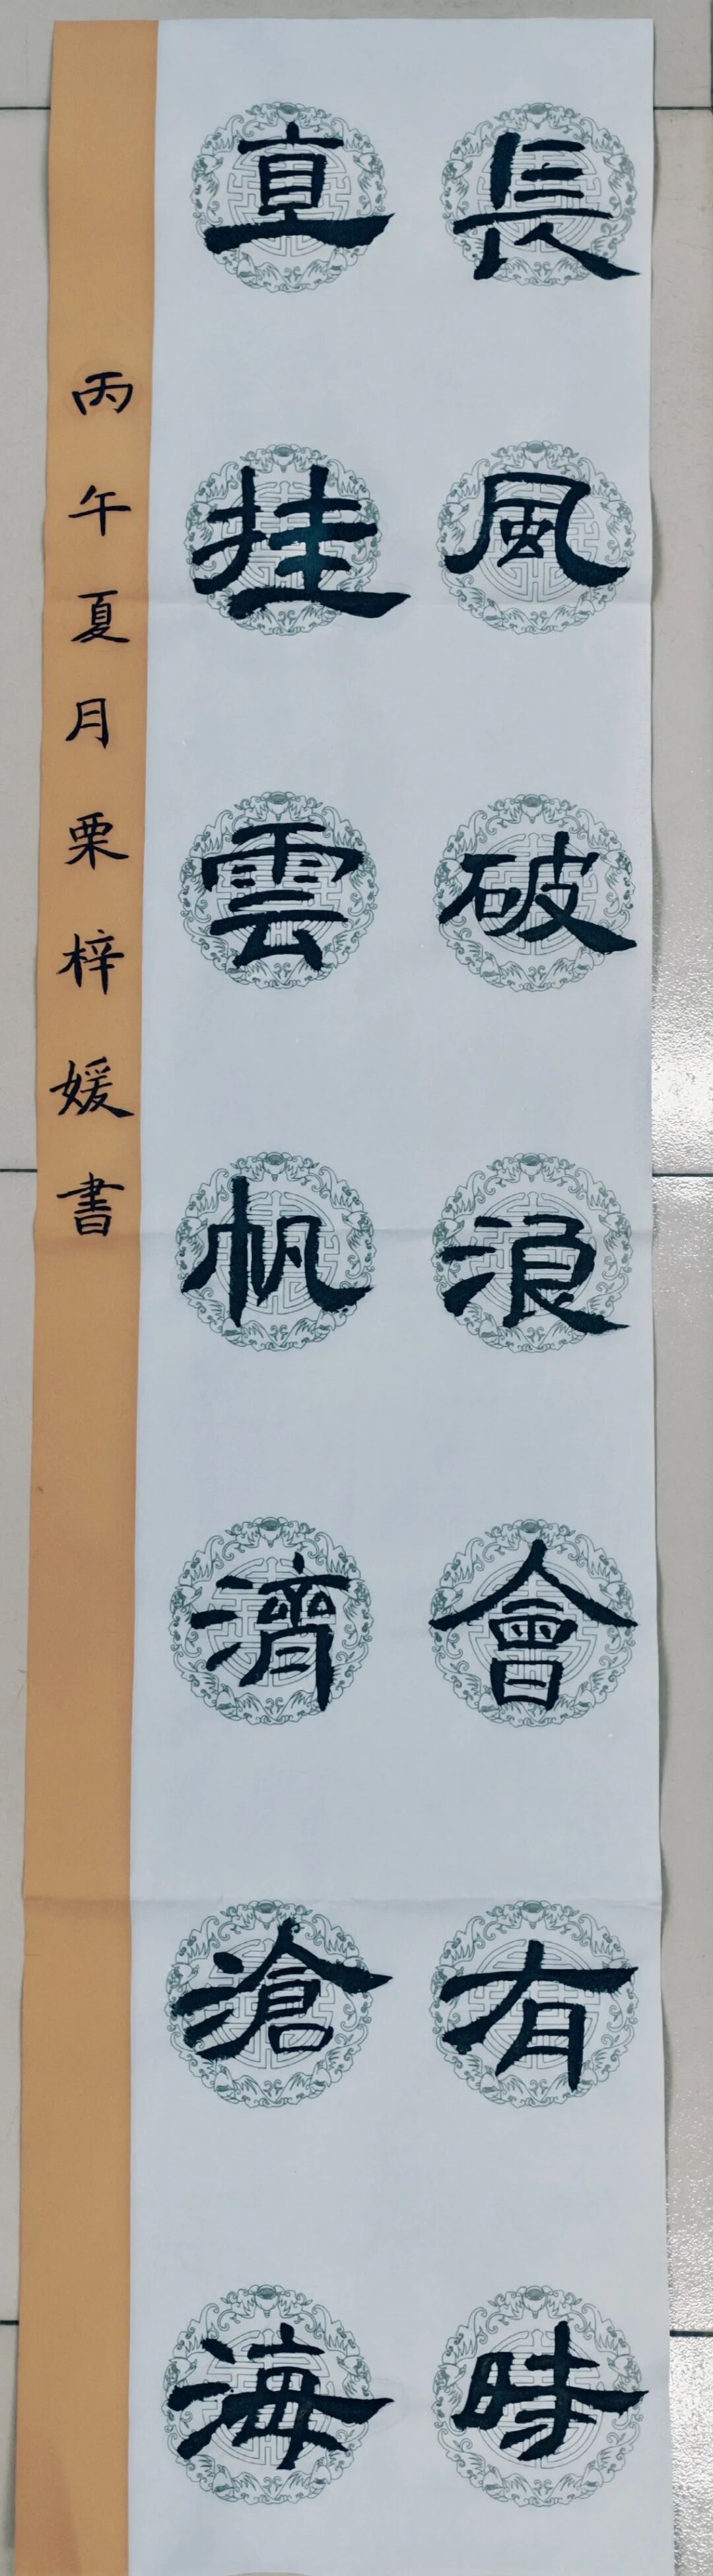 長風破浪會有時
直挂雲帆濟滄海
丙午夏月栗梓媛書